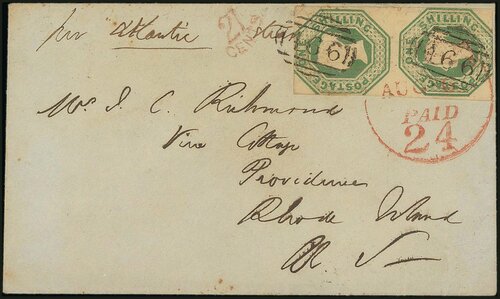 per Atlantic Steam
21
CENTS
SHILLING
POSTAGE
SHILLING
POSTAGE
166
166
AUG
PAID
24
Mrs J. C. Richmond
Vine Cottage
Providence
Rhode Island
U. S